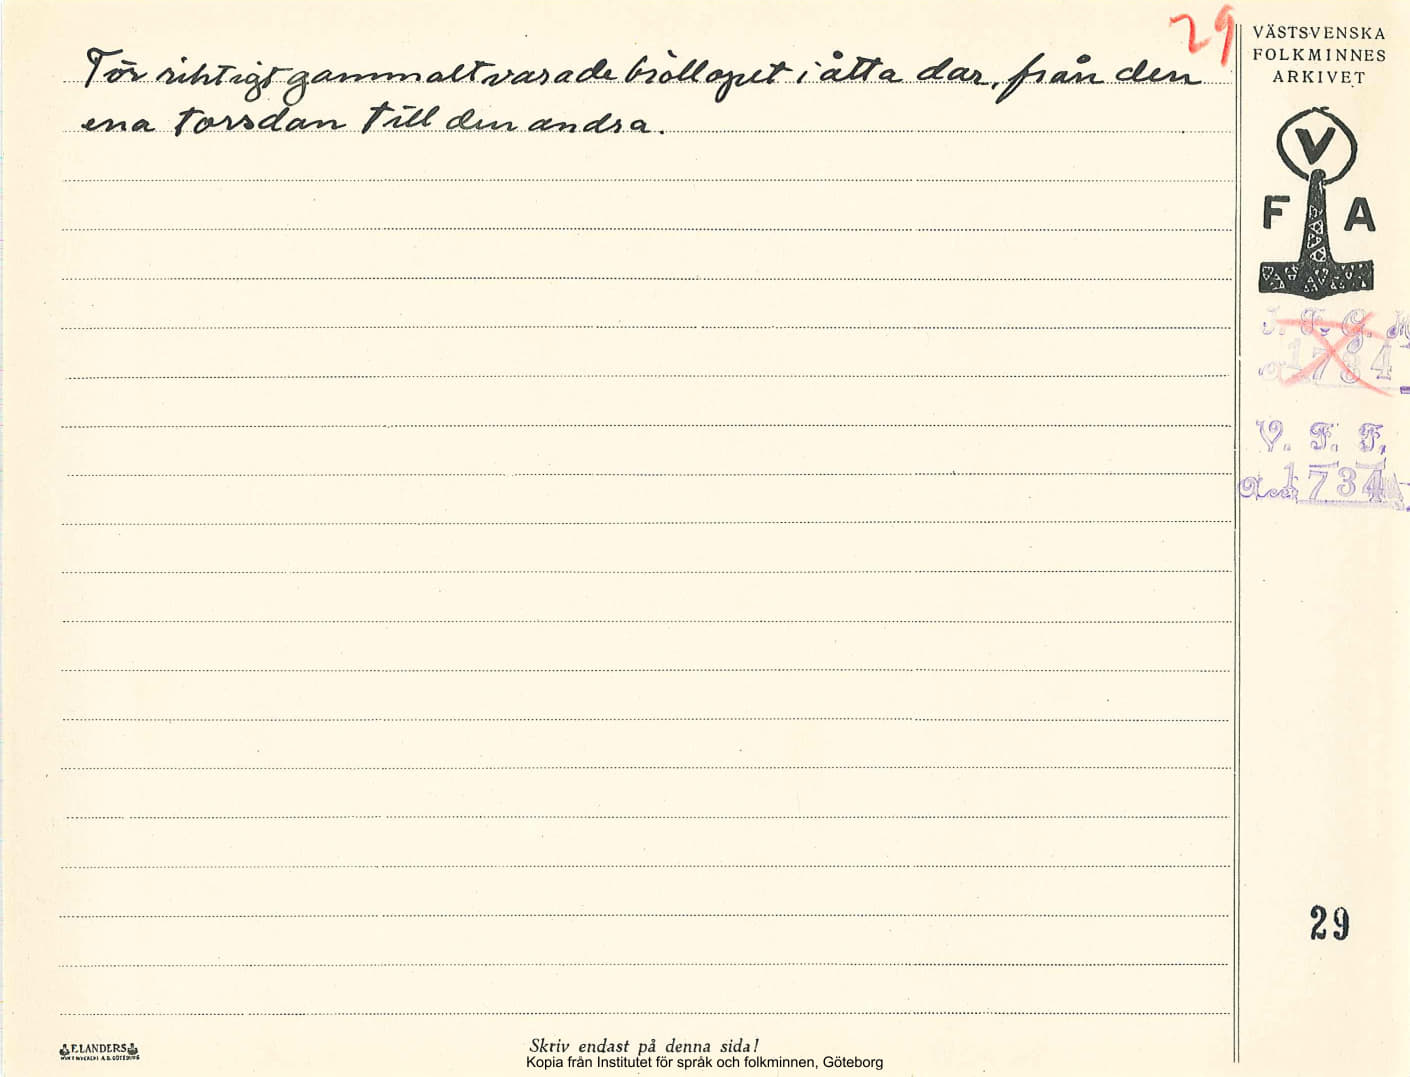 29
För riktigt gammalt varade bröllopet i åtta dar, från den
ena torsdan till den andra.
VÄSTSVENSKA
FOLKMINNES
ARKIVET
V
F A
I. F. G. H
1734
V. F. F.
Acc 1734
29
F. LANDERS
Skriv endast på denna sida!
Kopia från Institutet för språk och folkminnen, Göteborg